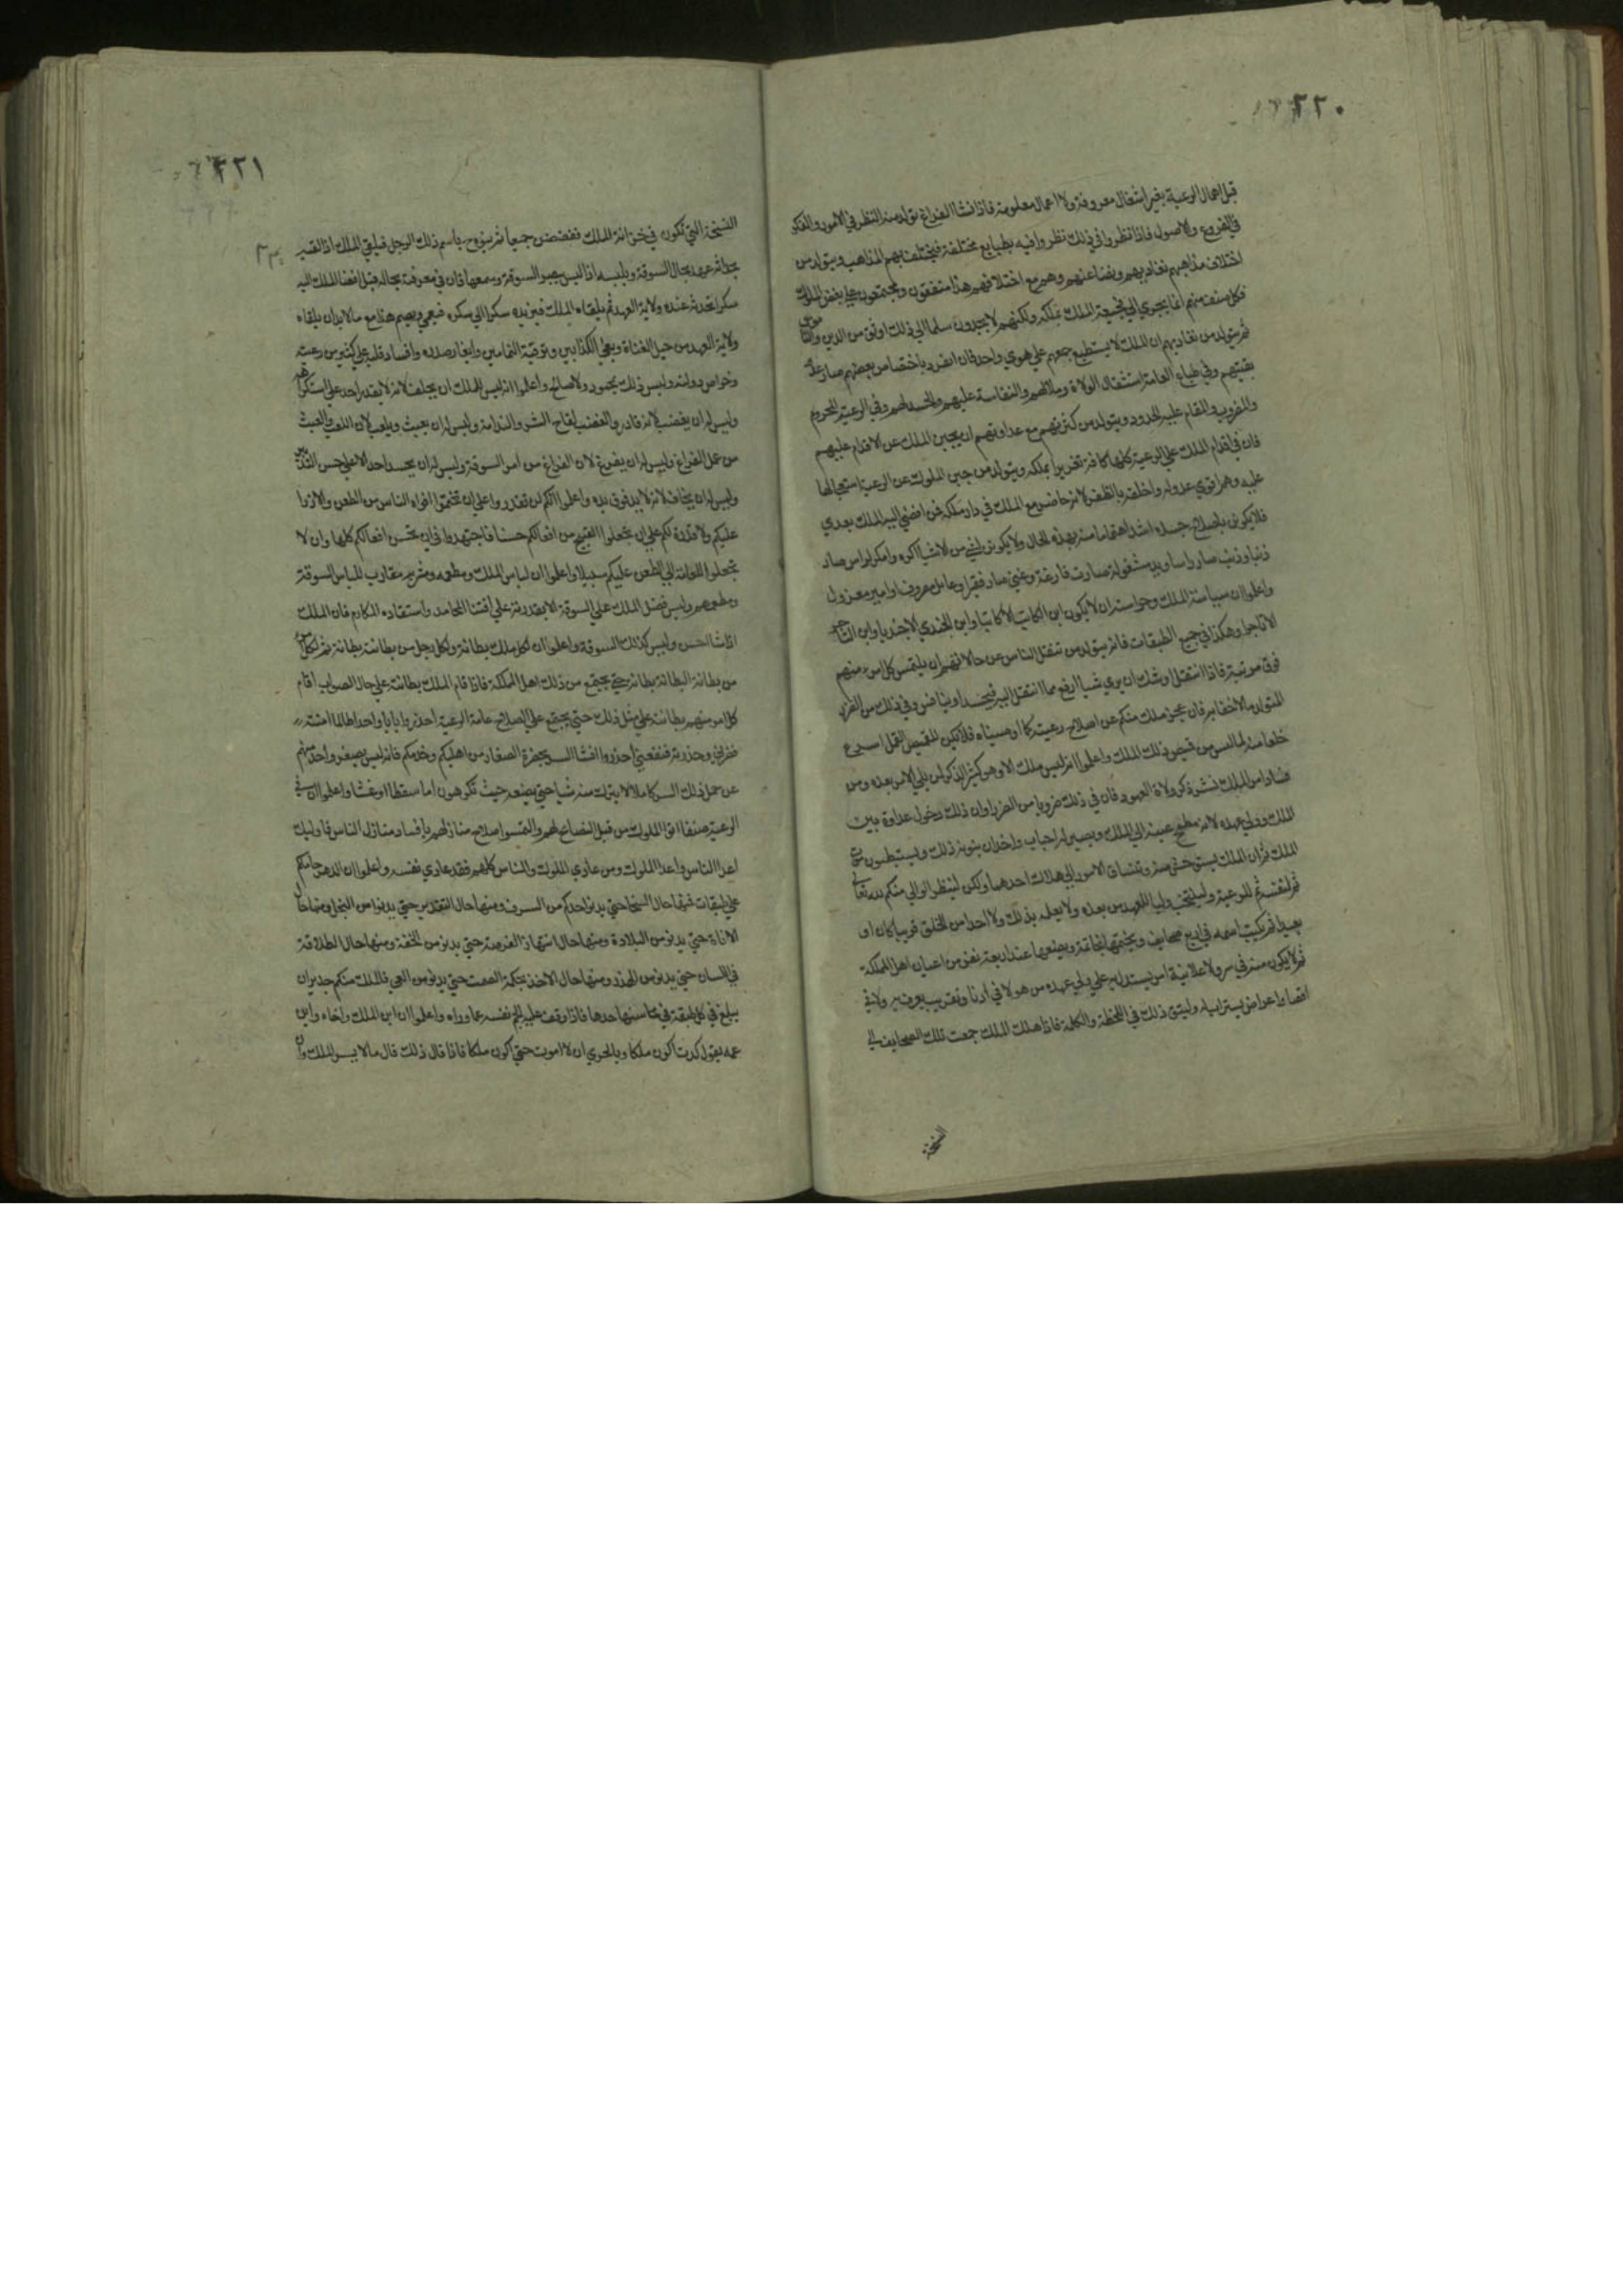 ٢٢٠
قبل اهمال الرعية بغير اشغال معروفة ولا اعمال معلومة فاذا نشا الفراغ تولد منه النظر في الامور والفكر
في الفروع والاصول فاذا نظروا في ذلك نظروا فيه بطبايع مختلفة فيختلف بهم المذاهب ويتولد من
اختلاف مذاهبهم تعاديهم وتضاغنهم وهم مع اختلافهم هذا متفقون ومجتمعون علي بغض الملوك
فكل صنف منهم انما يجري الي فجيعة الملك بملكه ولكنهم لا يجدون سلما الي ذلك اوثق من الدين والناموس
ثم يتولد من تعاديهم ان الملك لا يستطيع جمعهم علي هوي واحد فان انفرد باختصاص بعضهم صار عدو
بقيتهم وفي طباع العامة استثقال الولاة وملالهم والنفاسة عليهم والحسد لهم وفي الرعية المحروم
والمضروب والمقام عليه الحدود ويتولد من كثرتهم مع عداوتهم ان يجبن الملك عن الاقدام عليهم
فان في اقدام الملك علي الرعية كلها كافة تغريرا بملكه ويتولد من جبن الملوك عن الرعية استعجالها
عليه وهم اقوي عدو له واخلقه بالظفر لانه حاضر مع الملك في دار ملكه فمن افضي اليه الملك بعدي
فلا يكونن باصلاح جسده اشد اهتماما منه بهذه الحال ولا يكونن لشي من الاشيا اكره وامكر لراس صار
ذنبا وذنب صار راسا ويد مشغولة صارت فارغة وغني صار فقيرا وعامل مصروف او امير معزول
واعلموا ان سياسة الملك وحراسته ان لا يكون ابن الكاتب الا كاتبا وابن الجندي الا جنديا وابن التاجر
الا تاجرا وهكذا في جميع الطبقات فانه يتولد من تنقل الناس عن حالاتهم ان يلتمس كل امرء منهم
فوق مرتبته فاذا انتقل اوشك ان يري شيا ارفع مما انتقل اليه فيحسد او ينافس وفي ذلك من الضرر
المتولد ما لا خفا به فان عجز ملك منكم عن اصلاح رعيته كما اوصيناه فلا يكن للقميص القمل اسرع
خلعا منه لما لبس من قميص ذلك الملك واعلموا انه ليس ملك الا وهو كثير الذكر لمن يلي الامر بعده ومن
فساد امر الملك نشر ذكر ولاة العهود فان في ذلك ضروبا من الضرر وان ذلك دخول عداوة بين
الملك وولي عهده لانه مطمح عينه الي الملك ويصير له احباب واخدان يمنونه ذلك ويستبطون موت
الملك ثم ان الملك يستوحش منه وتنساق الامور الي هلاك احدهما ولكن لينظر الوالي منكم لله تعالي
ثم لنفسه ثم للرعية ولينتخب وليا للعهد من بعده ولا يعلمه بذلك ولا احدا من الخلق قريبا كان او
بعيدا ثم يكتب اسمه في اربع صحايف ويختمها بخاتمه ويضعها عند اربعة نفر من اعيان اهل المملكة
ثم لا يكون منه في سر ولا علانية امر يستدل به علي ولي عهده من هو لا في ادنا وتقريب يعرف به ولا في
اقصا واعراض يستراب له وليتق ذلك في اللحظة والكلمة فاذا هلك الملك جمعت تلك الصحايف الي
النسخة
٢٢١
النسخة التي تكون في خزانة الملك ففضضن جميعا ثم ينوه باسم ذلك الرجل فيلقي الملك اذا لقيه
بحداثة عهده بحال السوقة ويلبسه اذا لبس ببصر السوقة وسمعها فان في معرفته بحاله قبل افضا الملك اليه
سكرا تحدثه عنده ولاية العهد ثم يلقاه الملك فيزيده سكرا الي سكره فيعمي ويصم هذا مع ما لا بد ان يلقاه
ولاية العهد من حيل العتاة وبغي الكذابين وترقية النمامين وايغار صدره وافساد قلبه علي كثير من رعيته
وخواص دولته وليس ذلك بمحمود ولا صالح واعلموا انه ليس للملك ان يحلف لانه لا يقدر احد علي استكراهه
وليس له ان يغضب لانه قادر والغضب لقاح الشر والندامة وليس له ان يعبث ويلعب لان اللعب والعبث
من عمل الفراغ وليس له ان يفرغ لان الفراغ من امر السوقة وليس له ان يحسد احدا الا علي حسن التدبير
وليس له ان يخاف لانه لا يد فوق يده واعلموا انكم لن تقدروا علي ان تختموا افواه الناس من الطعن والازرا
عليكم ولا قدرة لكم علي ان تجعلوا القبيح من افعالكم حسنا فاجتهدوا في ان تحسن افعالكم كلها وان لا
تجعلوا للعامة الي الطعن عليكم سبيلا واعلموا ان لباس الملك ومطعمه ومشربه مقارب للباس السوقة
ومطعمهم وليس فضل الملك علي السوقة الا بقدرته علي اقتنا المحامد واستفادة المكارم فان الملك
اذا شا احسن وليس كذلك السوقة واعلموا ان لكل ملك بطانة ولكل رجل من بطانته بطانة ثم لكل امر
من بطانة البطانة بطانة حتي يجتمع من ذلك اهل المملكة فاذا اقام الملك بطانته علي حال الصواب اقام
كل امر منهم بطانته علي مثل ذلك حتي يجتمع علي الصلاح عامة الرعية احذروا بابا واحدا طالما امنته
فضرني وحذرته فنفعني احذروا افشا السر بحضرة الصغار من اهليكم وخدمكم فانه ليس يصغر واحد منهم
عن حمل ذلك السر كاملا لا يترك منه شيا حتي يضعه حيث تكرهون اما سقطا او غشا واعلموا ان في
الرعية صنفا اتوا الملوك من قبل النصايح لهم والتمسوا اصلاح منازلهم بافساد منازل الناس فاوليك
اعدا الناس واعدا الملوك ومن عادي الملوك والناس كلهم فقد عادي نفسه واعلموا ان الدهر حاملكم
علي طبقات فمنها حال السخا حتي يدنو احدكم من السرف ومنها حال التقدير حتي يدنو من البخل ومنها حال
الاناة حتي يدنو من البلادة ومنها حال انتهاز الفرصة حتي يدنو من الخفة ومنها حال الطلاقة
في اللسان حتي يدنو من الهذر ومنها حال الاخذ بحكمة الصمت حتي يدنو من العي فالملك منكم جدير ان
يبلغ في كل طبقة في محاسنها حدها فاذا وقف عليه الجم نفسه عما وراه واعلموا ان ابن الملك واخاه وابن
عمه يقول كدت اكون ملكا وبالحري ان لا اموت حتي اكون ملكا فاذا قال ذلك قال ما لا يسر الملك وان